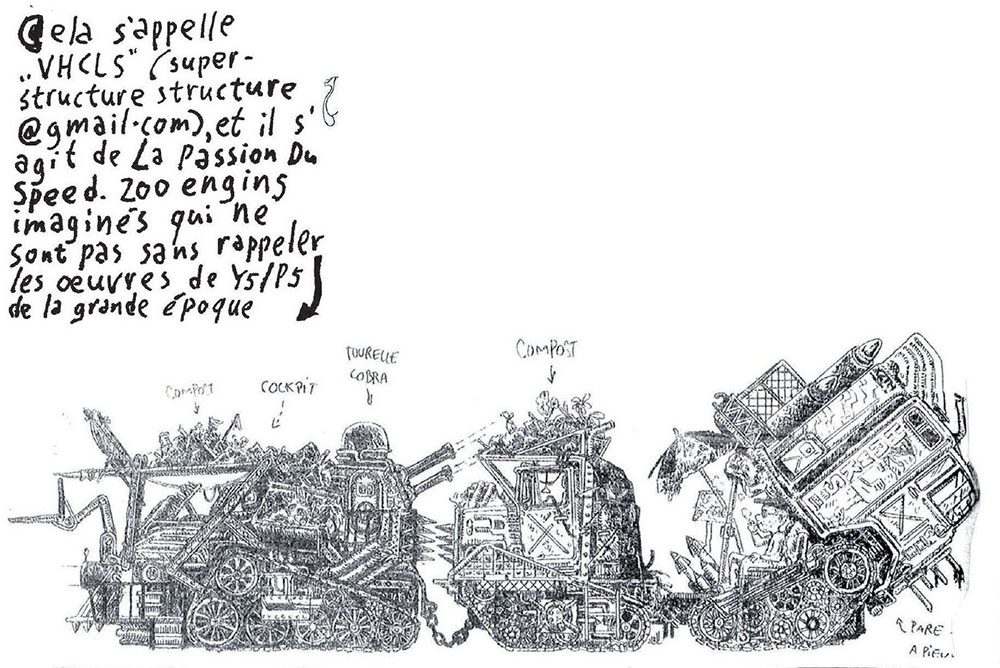 Cela s'appelle
„VHCLS" (super-
structure structure
@gmail.com), et il s'
agit de La Passion Du
Speed. 200 engins
imaginés qui ne
sont pas sans rappeler
les œuvres de Y5/P5
de la grande époque
COMPOST
COCKPIT
TOURELLE
COBRA
COMPOST
PARE-
A PIEU